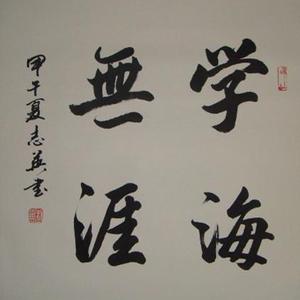 学海
無涯
甲午夏志英书